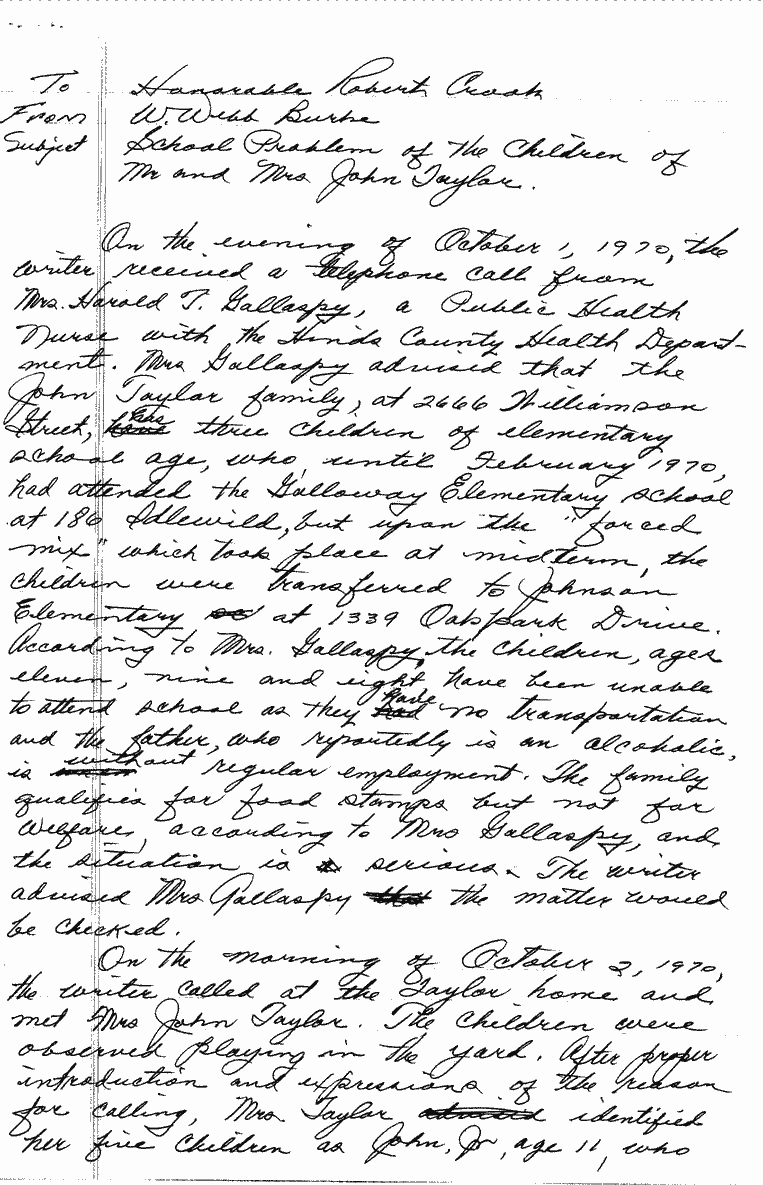 To Honorable Robert Crook
From W. Webb Burke
Subject School Problem of the Children of
Mr and Mrs John Taylor.
On the evening of October 1, 1970, the
writer received a telephone call from
Mrs. Harold T. Gallaspy, a Public Health
Nurse with the Hinds County Health Depart-
ment. Mrs Gallaspy advised that the
John Taylor family, at 2666 Williamson
Street, has three children of elementary
school age, who until February 1970,
had attended the Galloway Elementary school
at 186 Idlewild, but upon the "forced
mix" which took place at midterm, the
children were transferred to Johnson
Elementary at 1339 Oakpark Drive.
According to Mrs. Gallaspy, the children, ages
eleven, nine and eight have been unable
to attend school as they have no transportation
and the father, who reportedly is an alcoholic,
is without regular employment. The family
qualifies for food stamps but not for
Welfare, according to Mrs Gallaspy, and
the situation is serious. The writer
advised Mrs Gallaspy the matter would
be checked.
On the morning of October 2, 1970,
the writer called at the Taylor home and
met Mrs John Taylor. The children were
observed playing in the yard. After proper
introduction and expressions of the reason
for calling, Mrs. Taylor identified
her five children as John, Jr, age 11, who